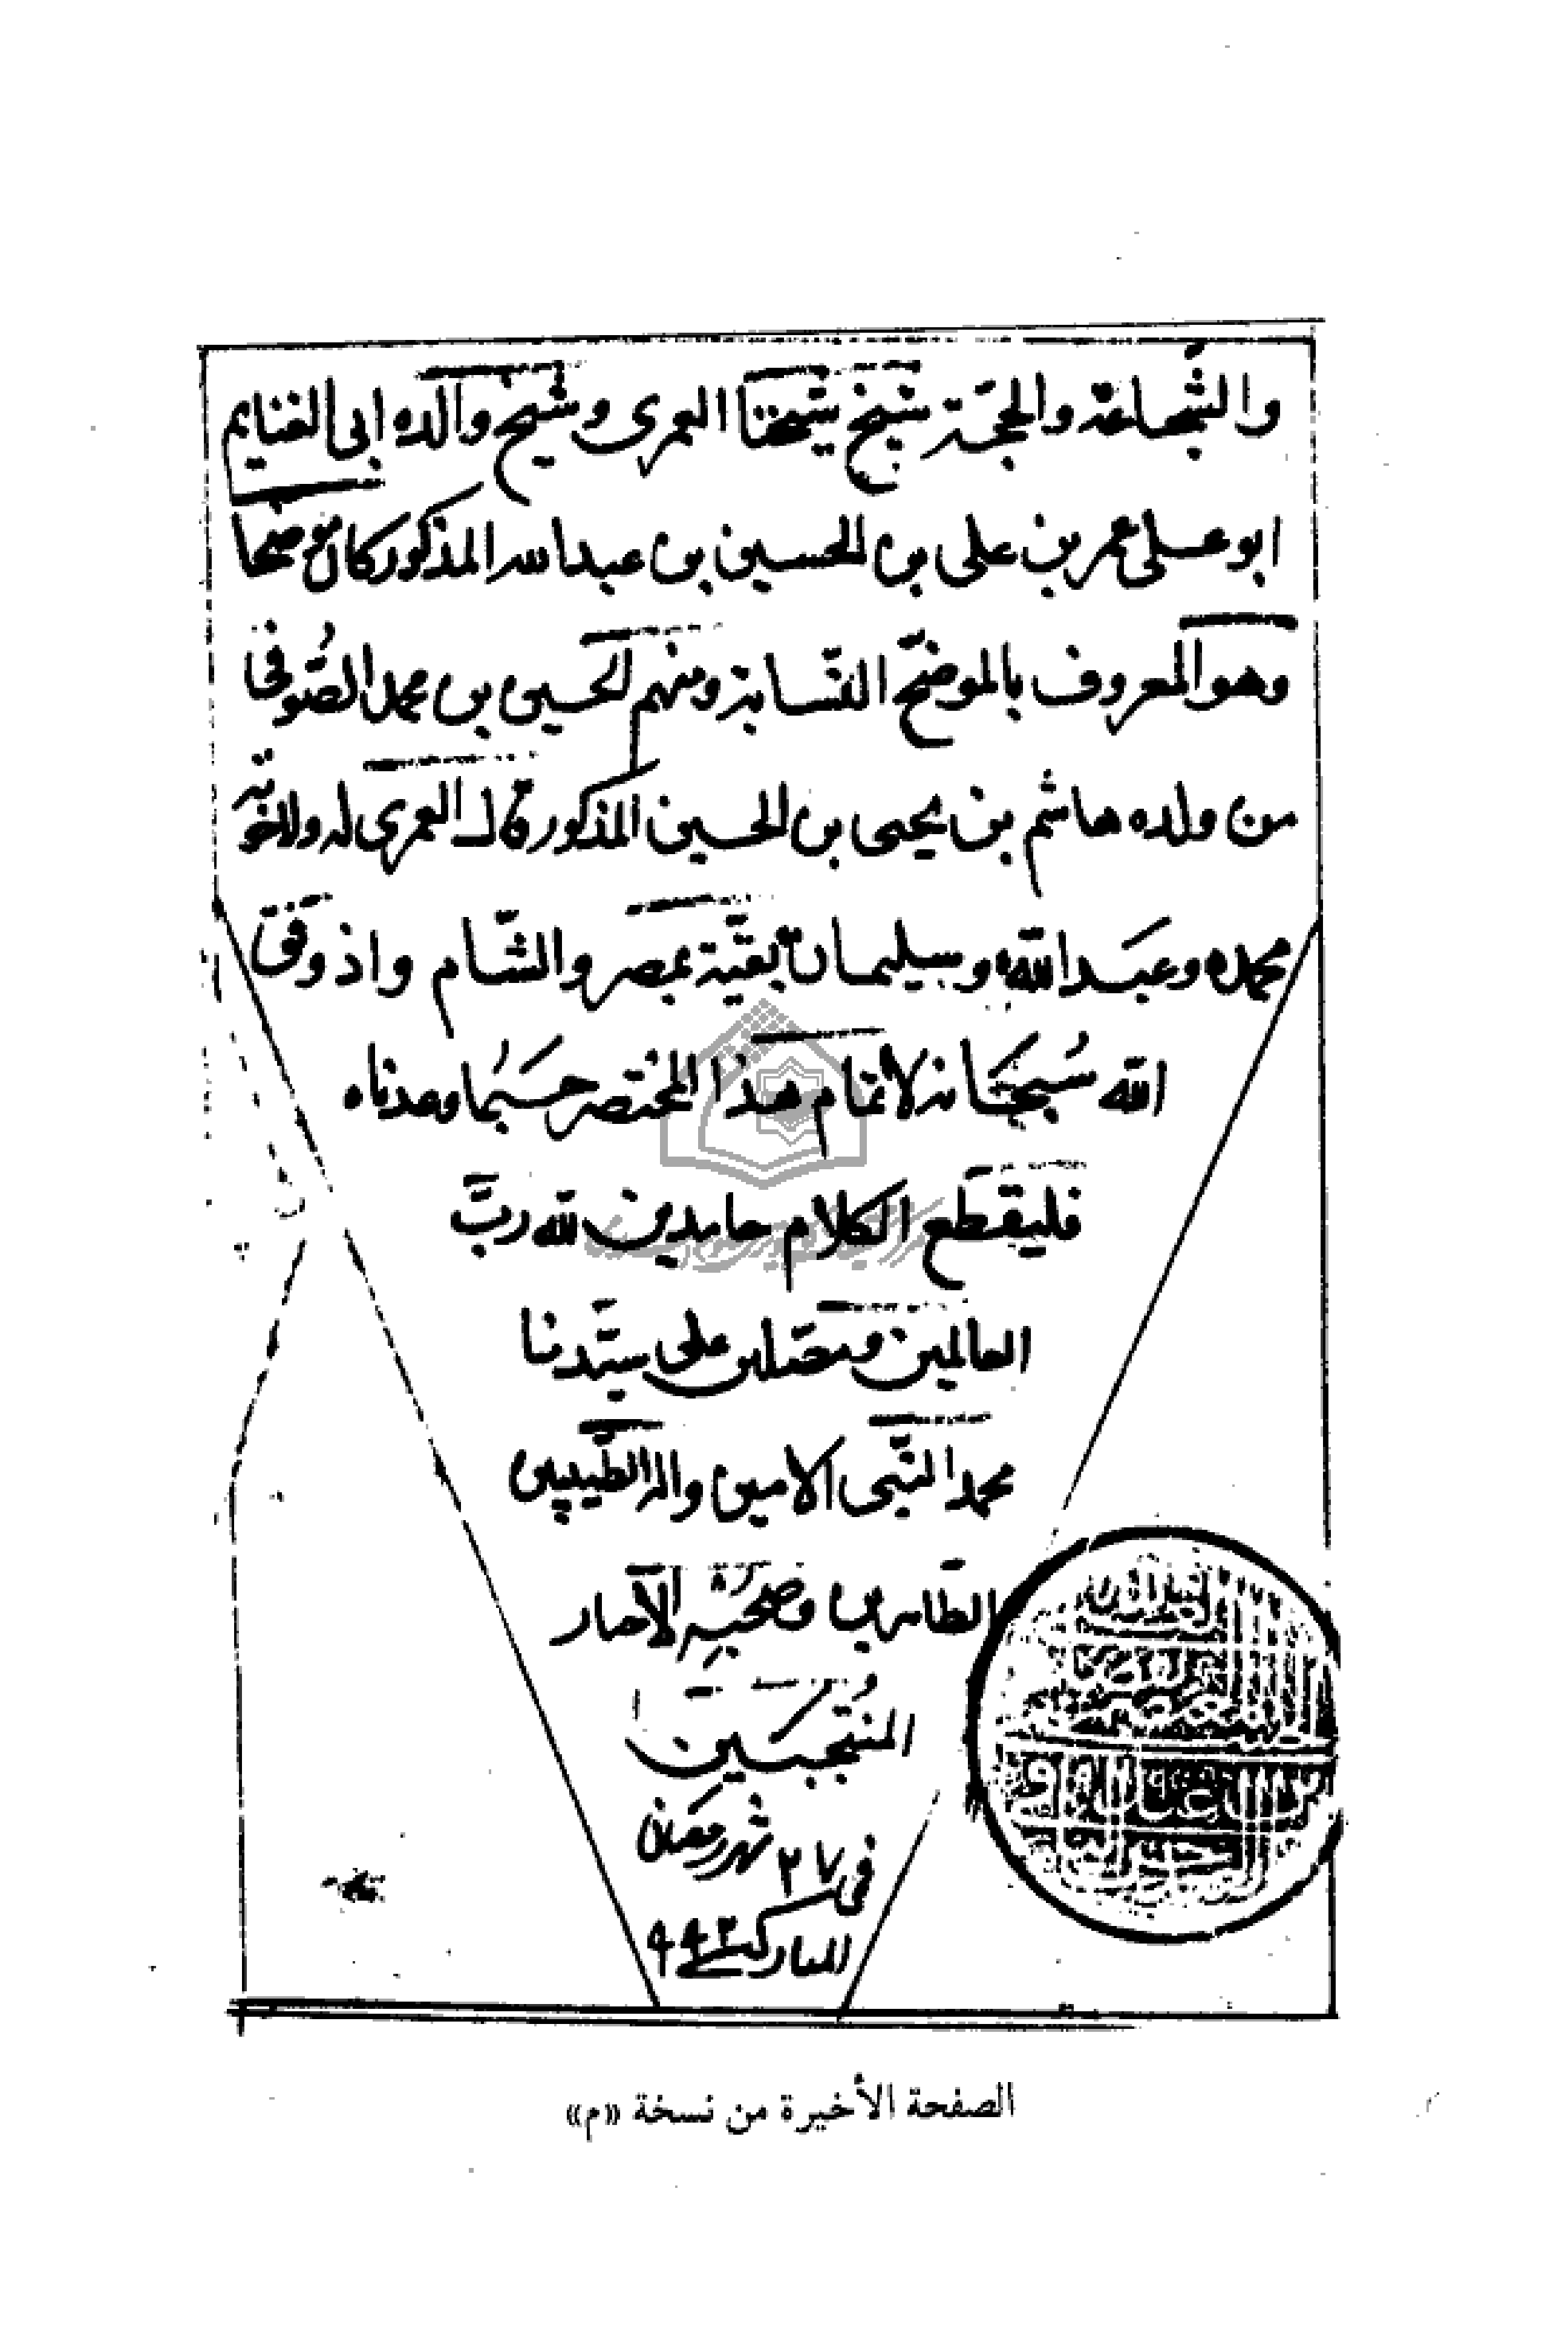 والشّجاعة والحجّة شيخ شيخنا العمرى وشيخ والده ابى الغنايم
ابو على عمر بن على بن الحسين بن عبدالله المذكور كان موضحا
وهو المعروف بالموضح النّسابة ومنهم الحسين بن محمد الصُّوفى
من ولده هاشم بن يحيى بن الحسين المذكور قال العمرى له ولاخوته
محمد وعبد اللّه وسليمان بقيّة بمصر والشّام واذ وفق
اللّه سُبحَانه لاتمام هذا المختصر حسَبُما وعدناه
فليقطع الكلام حامدين للّه ربّ
العالمين ومصلين على سيّدنا
محمد النّبى الامين واله الطّيبين
الطّاهرين وصَحبِه الأ
المنتُجبَين
فى ٢٧ شهر رمضان
المبارك
الصفحة الأخيرة من نسخة «م»